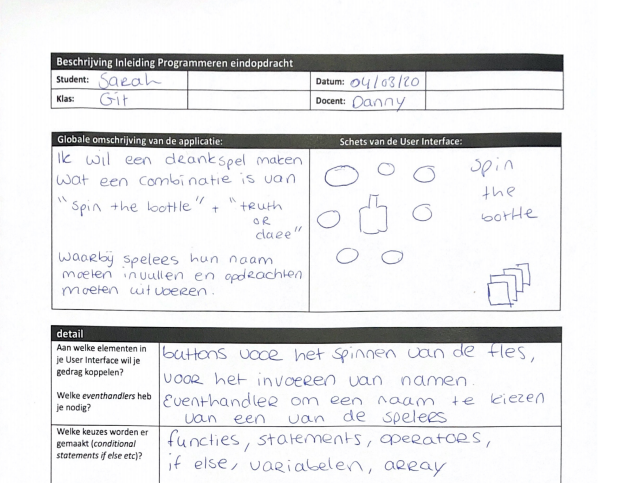 Beschrijving Inleiding Programmeren eindopdracht
Student: Sarah
Datum: 04/03/20
Klas: Git
Docent: Danny
Globale omschrijving van de applicatie:
Ik wil een drankspel maken
wat een combinatie is van
"spin the bottle" + "truth
or
dare"
Waarbij spelers hun naam
moeten invullen en opdrachten
moeten uitvoeren.
Schets van de User Interface:
spin
the
bottle
detail
Aan welke elementen in
je User Interface wil je
gedrag koppelen?
Welke eventhandlers heb
je nodig?
buttons voor het spinnen van de fles,
voor het invoeren van namen.
Eventhandler om een naam te kiezen
van een van de spelers
Welke keuzes worden er
gemaakt (conditional
statements if else etc)?
functies, statements, operators,
if else, variabelen, array